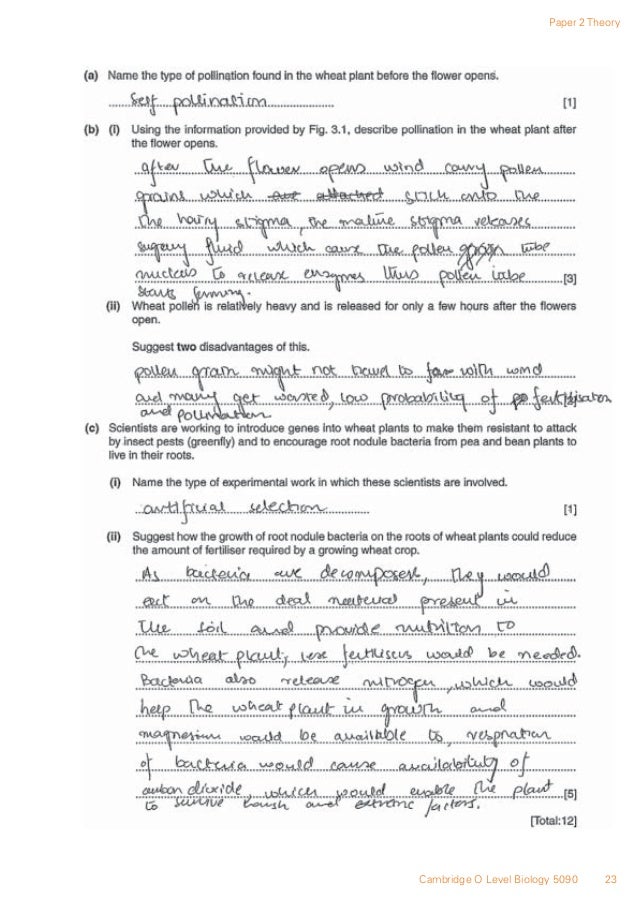 Paper 2 Theory
(a) Name the type of pollination found in the wheat plant before the flower opens.
Self pollination
[1]
(b) (i) Using the information provided by Fig. 3.1, describe pollination in the wheat plant after
the flower opens.
after the flower opens wind carry pollen
grains which are attached stick onto the
the hairy stigma, the mature stigma releases
sugary fluid which cause the pollen grain tube
nucleus to release enzymes thus pollen tube [3]
starts forming.
(ii) Wheat pollen is relatively heavy and is released for only a few hours after the flowers
open.
Suggest two disadvantages of this.
pollen grain might not travel to far with wind
and many get wasted, low probability of fertilisation
and pollination
(c) Scientists are working to introduce genes into wheat plants to make them resistant to attack
by insect pests (greenfly) and to encourage root nodule bacteria from pea and bean plants to
live in their roots.
(i) Name the type of experimental work in which these scientists are involved.
artificial selection
[1]
(ii) Suggest how the growth of root nodule bacteria on the roots of wheat plants could reduce
the amount of fertiliser required by a growing wheat crop.
As bacteria are decomposers, they would
act on the dead material present in
the soil and provide nutrition to
the wheat plant, less fertilisers would be needed.
Bacteria also release nitrogen, which would
help the wheat plant in growth and
magnesium would be available to, respiration
of bacteria would cause availability of
carbon dioxide, which would enable the plant [5]
to survive harsh and extreme factors.
[Total:12]
Cambridge O Level Biology 5090 23